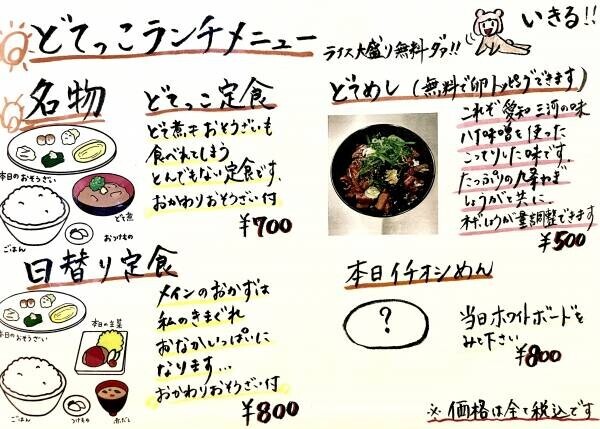 どてっこランチメニュー
ライス大盛り無料ダァ!!
いきる!!
名物
どてっこ定食
どて煮もおそうざいも
食べれてしまう
とんでもない定食です。
おかわりおそうざい付
¥700
本日のおそうざい
ごはん
どて煮
おつけもの
どてめし(無料で卵トッピングできます)
これぞ愛知三河の味
八丁味噌を使った
こってりした味です。
たっぷりの九条ねぎ
しょうがと共に。
ネギしょうが量調整できます
¥500
日替り定食
メインのおかずは
私のきまぐれ
おなかいっぱいに
なります…
おかわりおそうざい付
¥800
本日のおそうざい
本日の主菜
ごはん
つけもの
赤だし
本日イチオシめん
?
当日ホワイトボードを
みて下さい
¥800
※価格は全て税込です